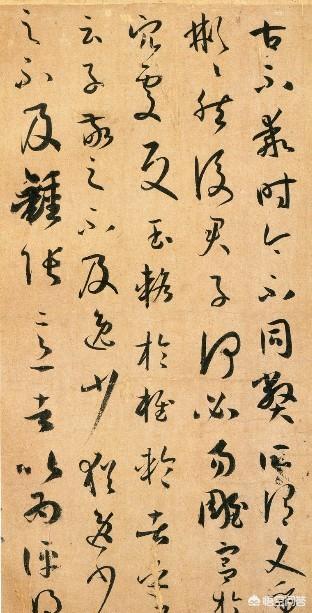 古不乖時今不同弊所謂文質
彬〻然後君子何必易雕宮於
穴處反玉輅於椎輪者乎
云子敬之不及逸少猶逸少
之不及鍾張意者以為評得
悟空问答